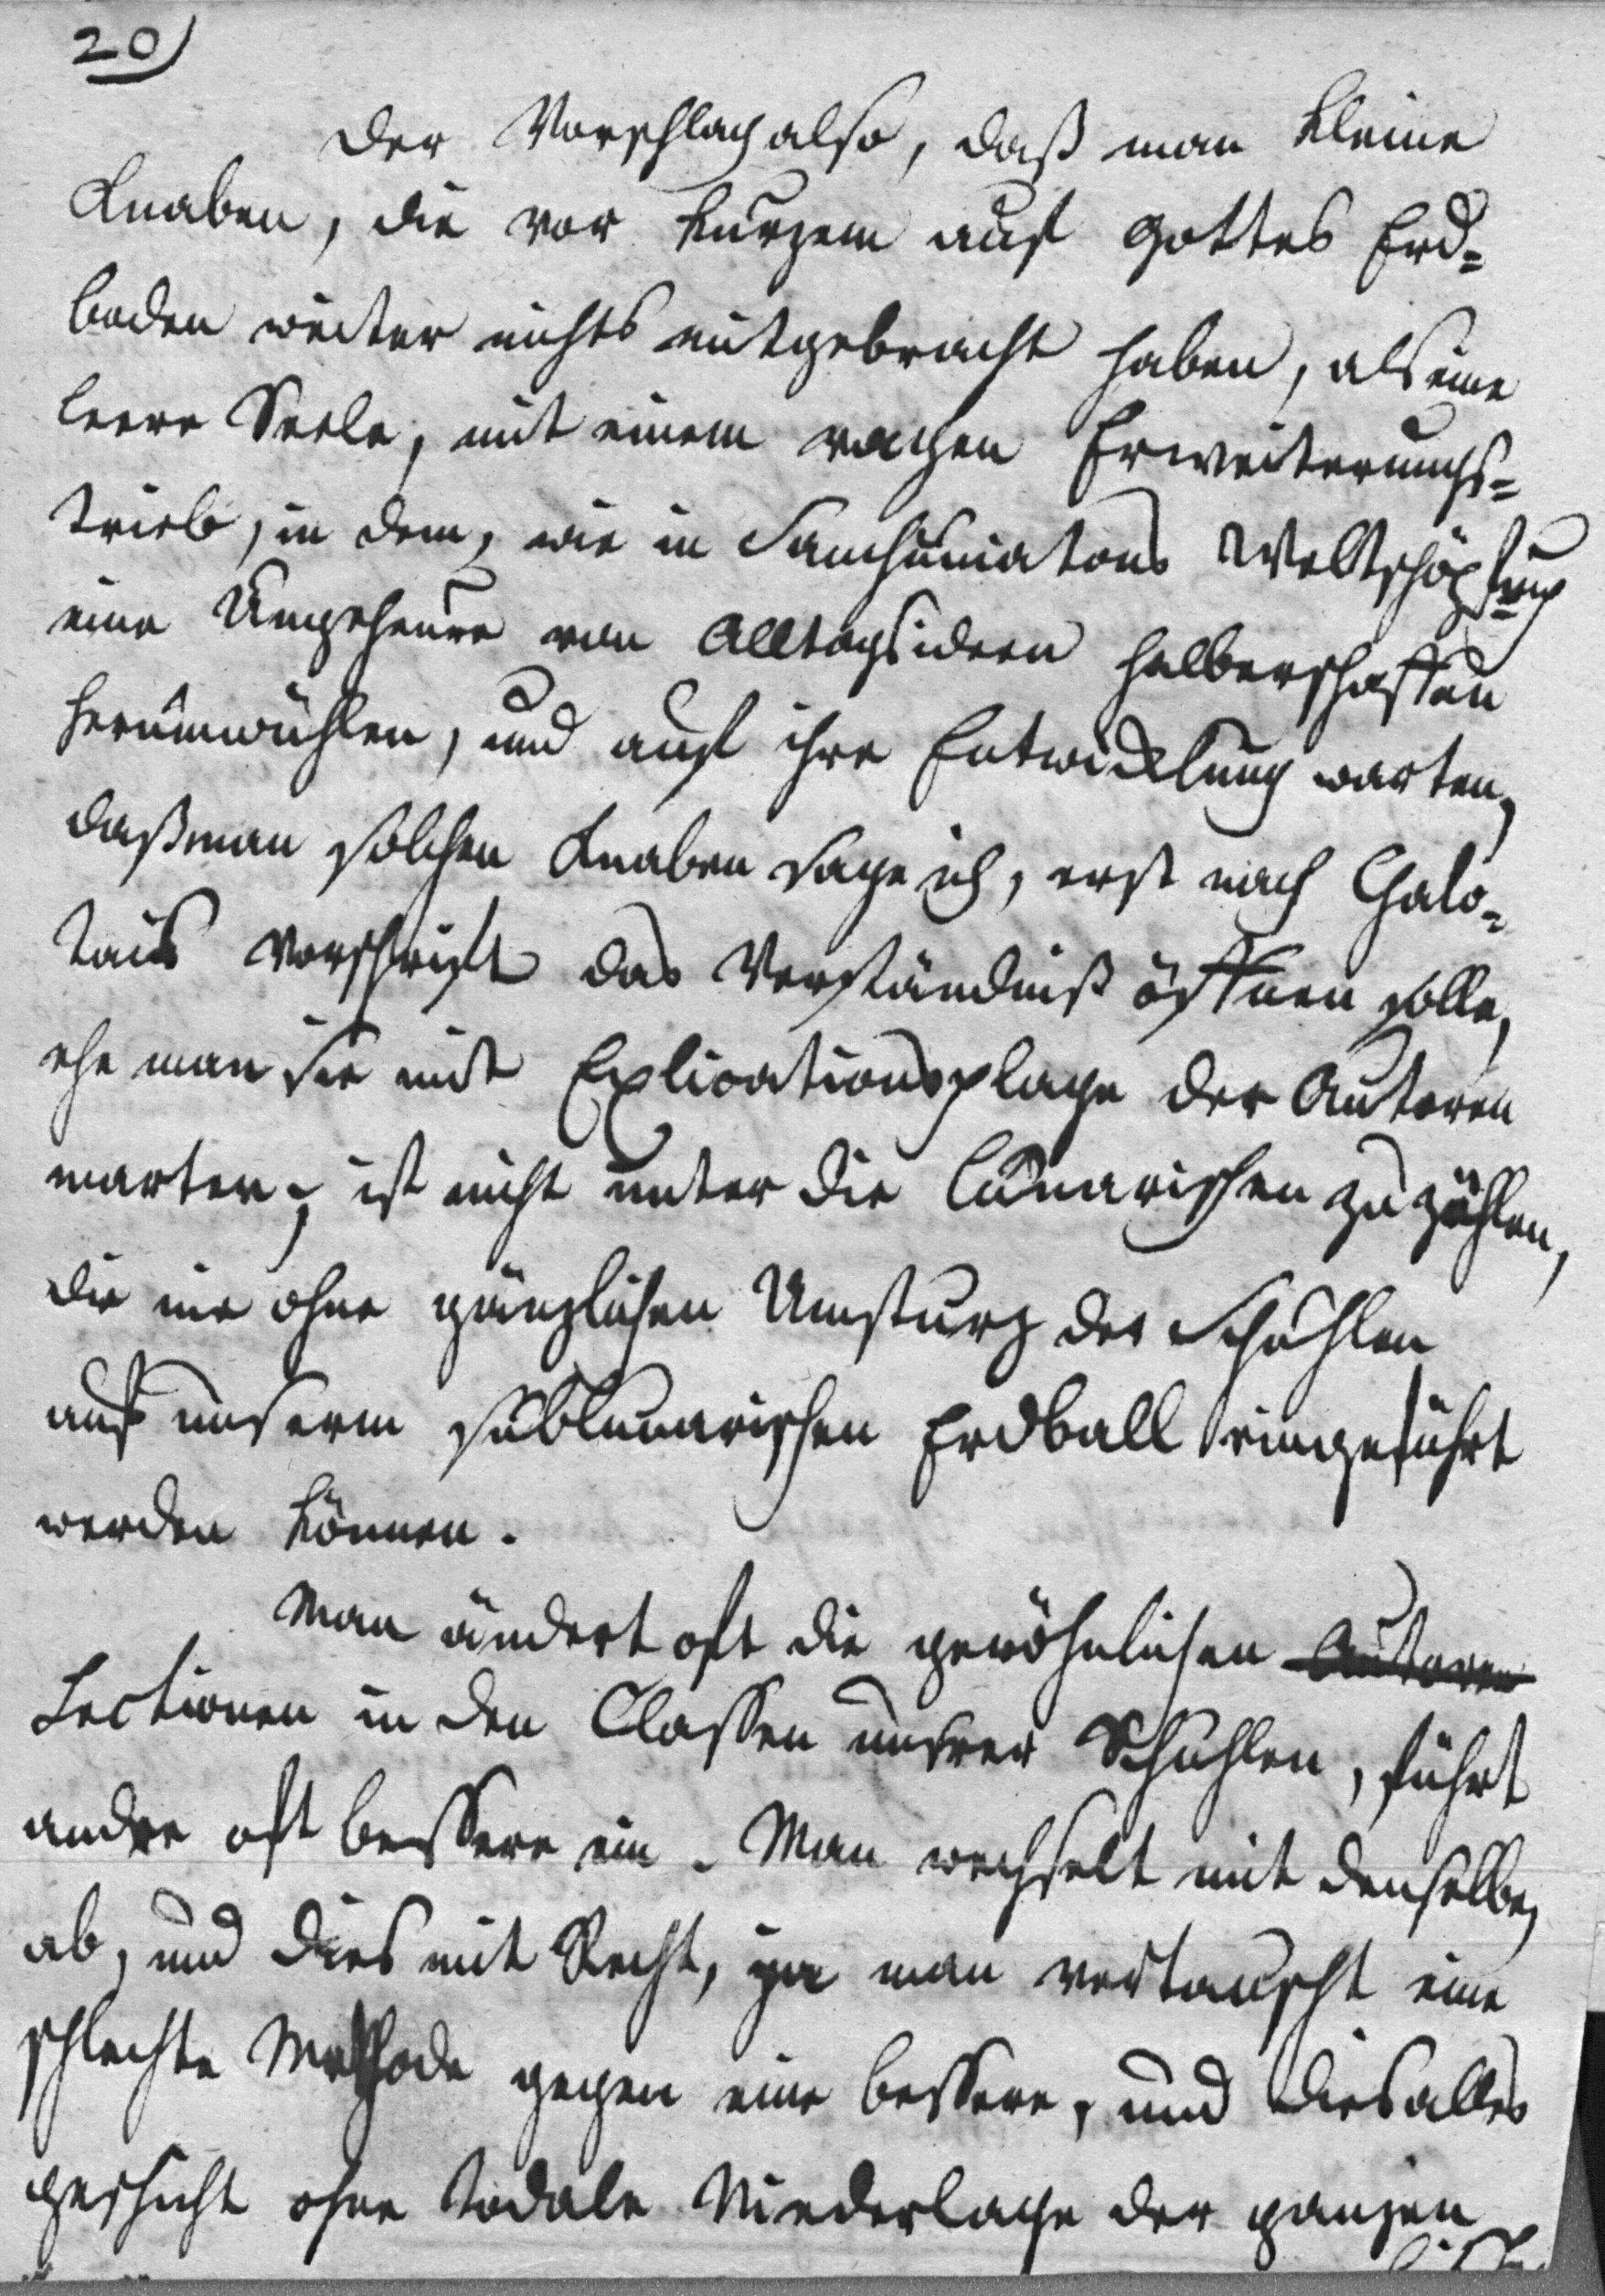 20)
Der Vorschlag also, daß man kleine
Knaben, die vor kurzem auf Gottes Erd=
boden weiter nichts mitgebracht haben, als eine
leere Seele, mit einem regen Erweiterungs=
trieb, in dem, wie in Sanchuniatons Weltschöpfung
eine Ungeheure von Alltagsideen halberschaffen
herumwühlen, und auf ihre Entwicklung warten,
daß man solchen Knaben sage ich, erst nach Chalo=
tais Vorschrift das Verständniß öffnen solle,
ehe man sie mit Explicationsplage der Autoren
marter; ist nicht unter die Lunarischen zu zählen,
die nie ohne gänzlichen Umsturz der Schuhlen
auf unserm sublunarischen Erdball eingeführt
werden können.
Man ändert oft die gewöhnlichen Autoren
Lectionen in den Classen unsrer Schuhlen, führt
andre oft bessere ein. Man wechselt mit denselben
ab, und dies mit Recht, ja man vertauscht eine
schlechte Methode gegen eine bessere, und dies alles
geschicht ohne todale Niederlage der ganzen